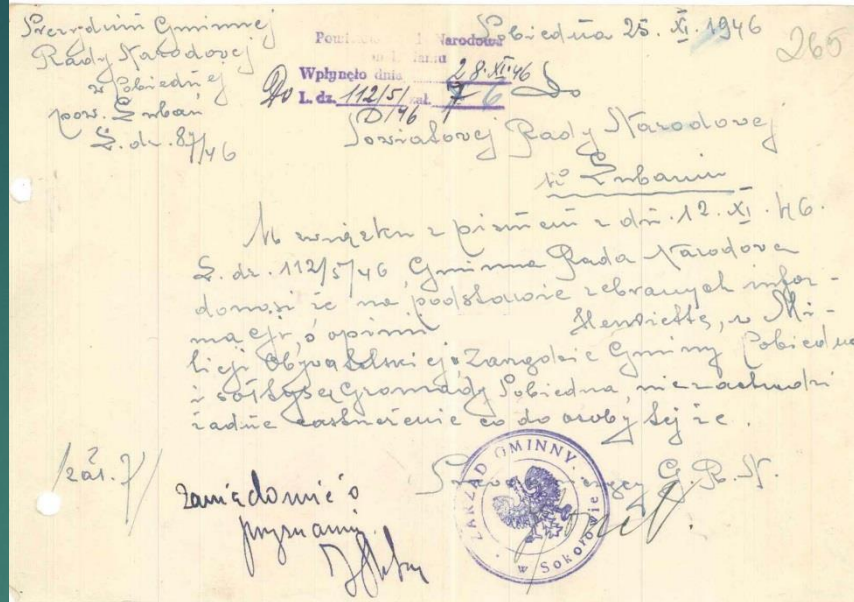 Prezydium Gminnej
Rady Narodowej
w Pobiednej
pow. Lubań
L. dz. 87/46
Pobiedna 25. XI. 1946
265
Narodowa
Wpłynęło dnia 28. XI. 46
L. dz. 112/5/ zał. 7
D/46
Do
Powiatowej Rady Narodowej
w Lubaniu
W związku z pismem z dn. 12. XI. 46.
L. dz. 112/5/46, Gminna Rada Narodowa
donosi że na podstawie zebranych infor-
macji, o opinii Henriette, w Mi-
licji Obywatelskiej, Zarządzie Gminy Pobiedna
i sołtysa Gromady Pobiedna, nie zachodzi
żadne zastrzeżenie co do osoby tej że.
/zał. 7/
G. R. N.
zawiadomić o
przyznaniu
ZARZĄD GMINNY
w Sokorowie